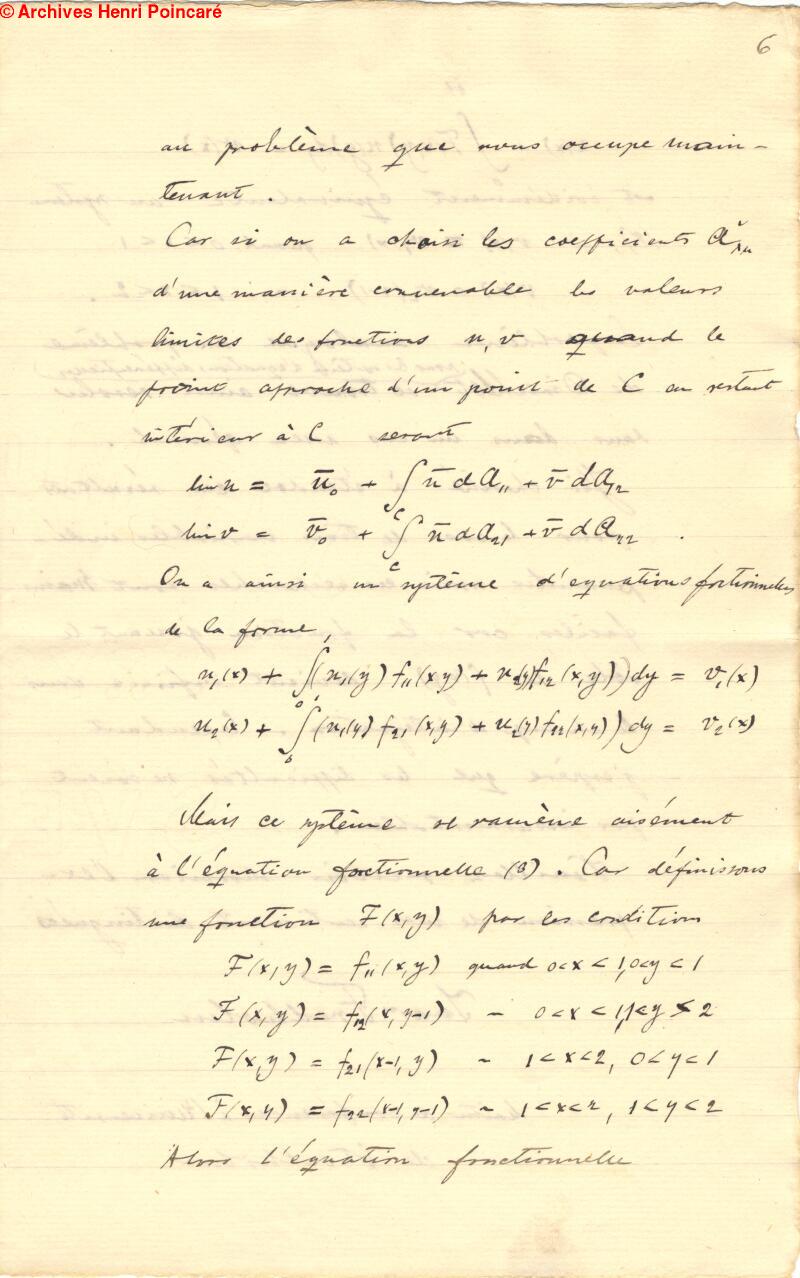 © Archives Henri Poincaré
6
au problème que nous occupe main-
tenant.
Car si on a choisi les coefficients a
d'une manière convenable les valeurs
limites des fonctions u, v quand le
point approche d'un point de C en restant
intérieur à C seront
lim u = ū₀ + ∫_C ū dA₁₁ + v̄ dA₁₂
lim v = v̄₀ + ∫_C ū dA₂₁ + v̄ dA₂₂ .
On a ainsi un système d'equations fonctionnelles
de la forme,
u₁(x) + ∫₀ (u₁(y) f₁₁(x y) + u₂(y) f₁₂(x, y)) dy = v₁(x)
u₂(x) + ∫₀ (u₁(y) f₂₁(x, y) + u₂(y) f₂₂(x, y)) dy = v₂(x)
Mais ce système se ramène aisément
à l'équation fonctionnelle (8). Car définissons
une fonction F(x, y) par les condition
F(x, y) = f₁₁(x, y) quand 0<x<1, 0<y<1
F(x, y) = f₁₂(x, y-1) – 0<x<1, 1<y<2
F(x, y) = f₂₁(x-1, y) – 1<x<2, 0<y<1
F(x, y) = f₂₂(x-1, y-1) – 1<x<2, 1<y<2
Alors l'équation fonctionnelle